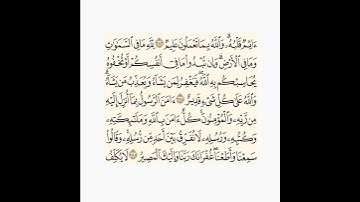 ءَاثِمٌ قَلْبُهُۥ وَٱللَّهُ بِمَا تَعْمَلُونَ عَلِيمٌ ٢٨٣ لِّلَّهِ مَا فِى ٱلسَّمَـٰوَٰتِ
وَمَا فِى ٱلْأَرْضِ وَإِن تُبْدُوا۟ مَا فِىٓ أَنفُسِكُمْ أَوْ تُخْفُوهُ
يُحَاسِبْكُم بِهِ ٱللَّهُ فَيَغْفِرُ لِمَن يَشَآءُ وَيُعَذِّبُ مَن يَشَآءُ
وَٱللَّهُ عَلَىٰ كُلِّ شَىْءٍ قَدِيرٌ ٢٨٤ ءَامَنَ ٱلرَّسُولُ بِمَآ أُنزِلَ إِلَيْهِ
مِن رَّبِّهِۦ وَٱلْمُؤْمِنُونَ كُلٌّ ءَامَنَ بِٱللَّهِ وَمَلَـٰٓئِكَتِهِۦ
وَكُتُبِهِۦ وَرُسُلِهِۦ لَا نُفَرِّقُ بَيْنَ أَحَدٍ مِّن رُّسُلِهِۦ وَقَالُوا۟
سَمِعْنَا وَأَطَعْنَا غُفْرَانَكَ رَبَّنَا وَإِلَيْكَ ٱلْمَصِيرُ ٢٨٥ لَا يُكَلِّفُ